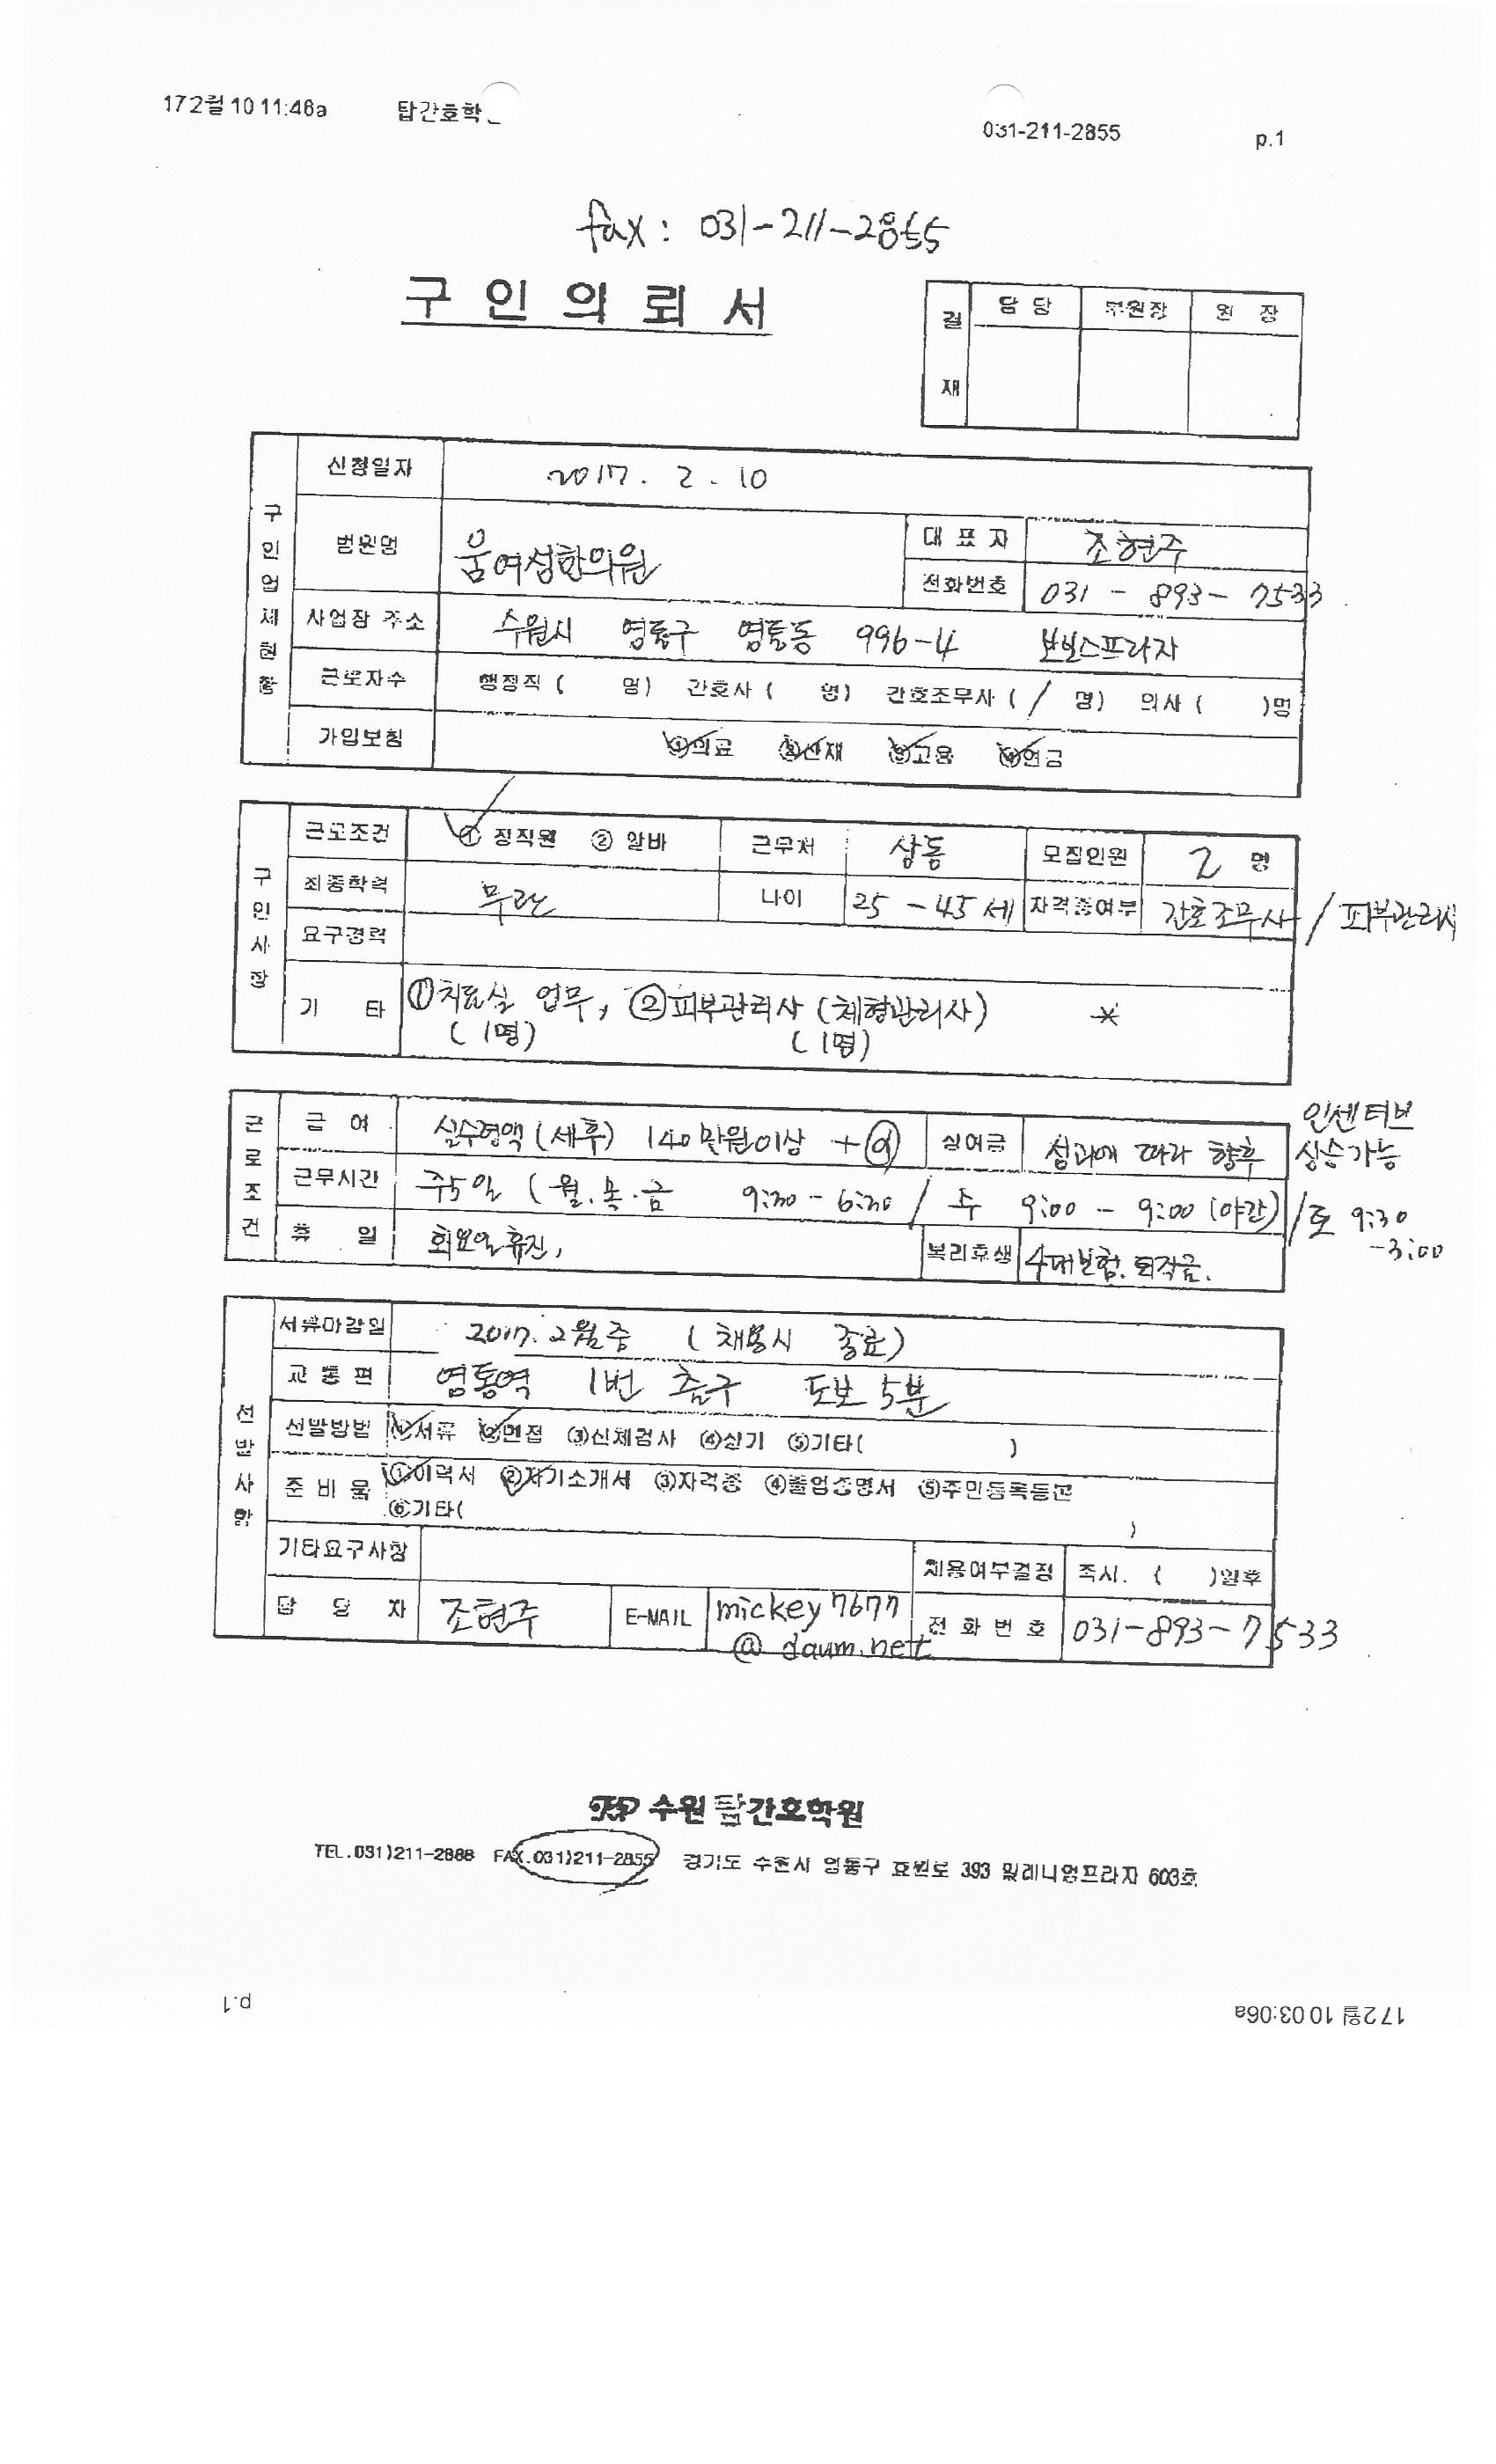 172월 10 11:46a 탑간호학 031-211-2855 p.1
fax : 031-211-2855
구 인 의 뢰 서
결재 담 당 부원장 원 장
구인업체현황
신청일자 2017. 2. 10
병원명 움여성한의원 대 표 자 조현주
전화번호 031 - 893 - 7533
사업장 주소 수원시 영통구 영통동 996-4 보보스프라자
근로자수 행정직 ( 명) 간호사 ( 명) 간호조무사 ( / 명) 의사 ( )명
가입보험 ①의료 ②산재 ③고용 ④연금
구인사항
근로조건 ① 정직원 ② 알바 근무처 상동 모집인원 2 명
최종학력 무관 나이 25 - 45 세 자격증여부 간호조무사 / 피부관리사
요구경력
기 타 ①치료실 업무, ②피부관리사 (체형관리사) *
(1명) (1명)
근로조건
급 여 실수령액 (세후) 140만원이상 + α 상여금 성과에 따라 향후 인센티브 상승가능
근무시간 주5일 ( 월.목.금 9:30 - 6:30 / 수 9:00 - 9:00 (야간) / 토 9:30 - 3:00
휴 일 화요일 휴진, 복리후생 4대보험. 퇴직금.
선발사항
서류마감일 2017. 2월중 ( 채용시 종료)
교 통 편 영통역 1번 출구 도보 5분
선발방법 ①서류 ②면접 ③신체검사 ④실기 ⑤기타( )
준 비 물 ①이력서 ②자기소개서 ③자격증 ④졸업증명서 ⑤주민등록등본
⑥기타( )
기타요구사항 채용여부결정 즉시. ( )일후
담 당 자 조현주 E-MAIL mickey7677@daum.net 전 화 번 호 031-893-7533
TOP 수원 탑간호학원
TEL.031)211-2888 FAX.031)211-2855 경기도 수원시 영통구 효원로 393 밀레니엄프라자 603호
p.1 172월 10 03:06a